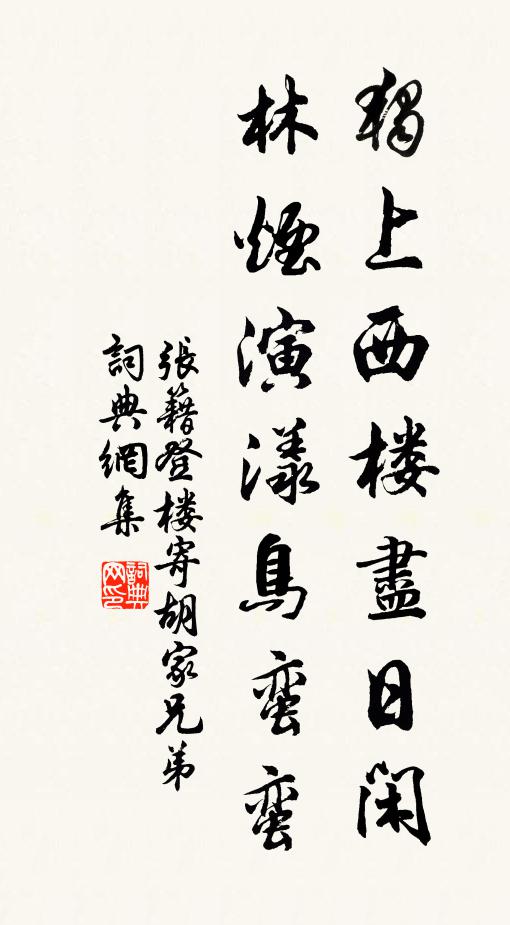 獨上西楼盡日閑
林煙演漾鳥蛮蛮
張籍登楼寄胡家兄弟
詞典網集
詞典网印